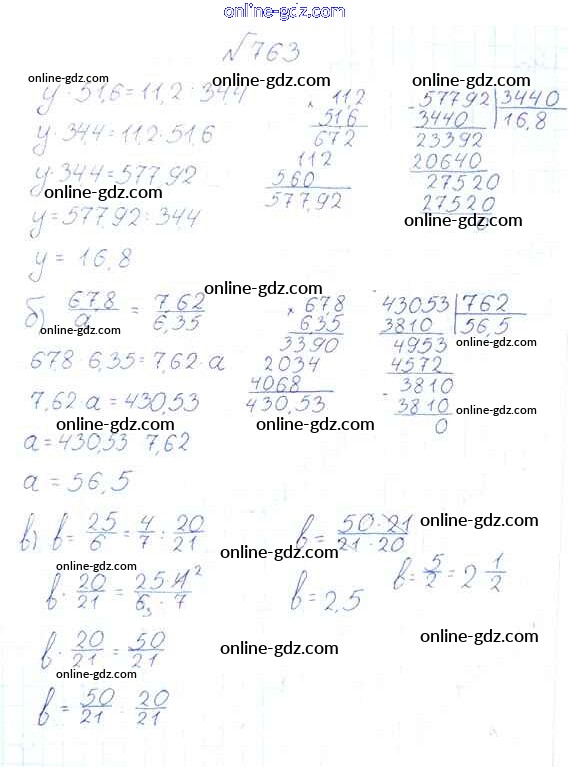 online-gdz.com
№763
online-gdz.com online-gdz.com online-gdz.com
y · 51,6 = 11,2 · 34,4
y · 34,4 = 11,2 · 51,6
y · 34,4 = 577,92
y = 577,92 : 34,4
y = 16,8
× 11,2
51,6
672
112
560
577,92
- 57792 | 3440
3440 | 16,8
23392
20640
27520
27520
0
online-gdz.com online-gdz.com online-gdz.com
online-gdz.com
б) 67,8/a = 7,62/6,35
67,8 6,35 = 7,62 · a
7,62 · a = 430,53
a = 430,53 7,62
a = 56,5
× 67,8
6,35
3390
2034
4068
430,53
43053 | 762
3810 | 56,5
4953
4572
- 3810
3810
0
online-gdz.com online-gdz.com
online-gdz.com online-gdz.com online-gdz.com
в) b = 25/6 = 4/7 : 20/21
b · 20/21 = 25 · 4 2/6 3 · 7
b · 20/21 = 50/21
b = 50/21 : 20/21
b = 50 · 21/21 · 20
b = 5/2 = 2 1/2
b = 2,5
online-gdz.com
online-gdz.com
online-gdz.com
online-gdz.com
online-gdz.com
online-gdz.com
online-gdz.com